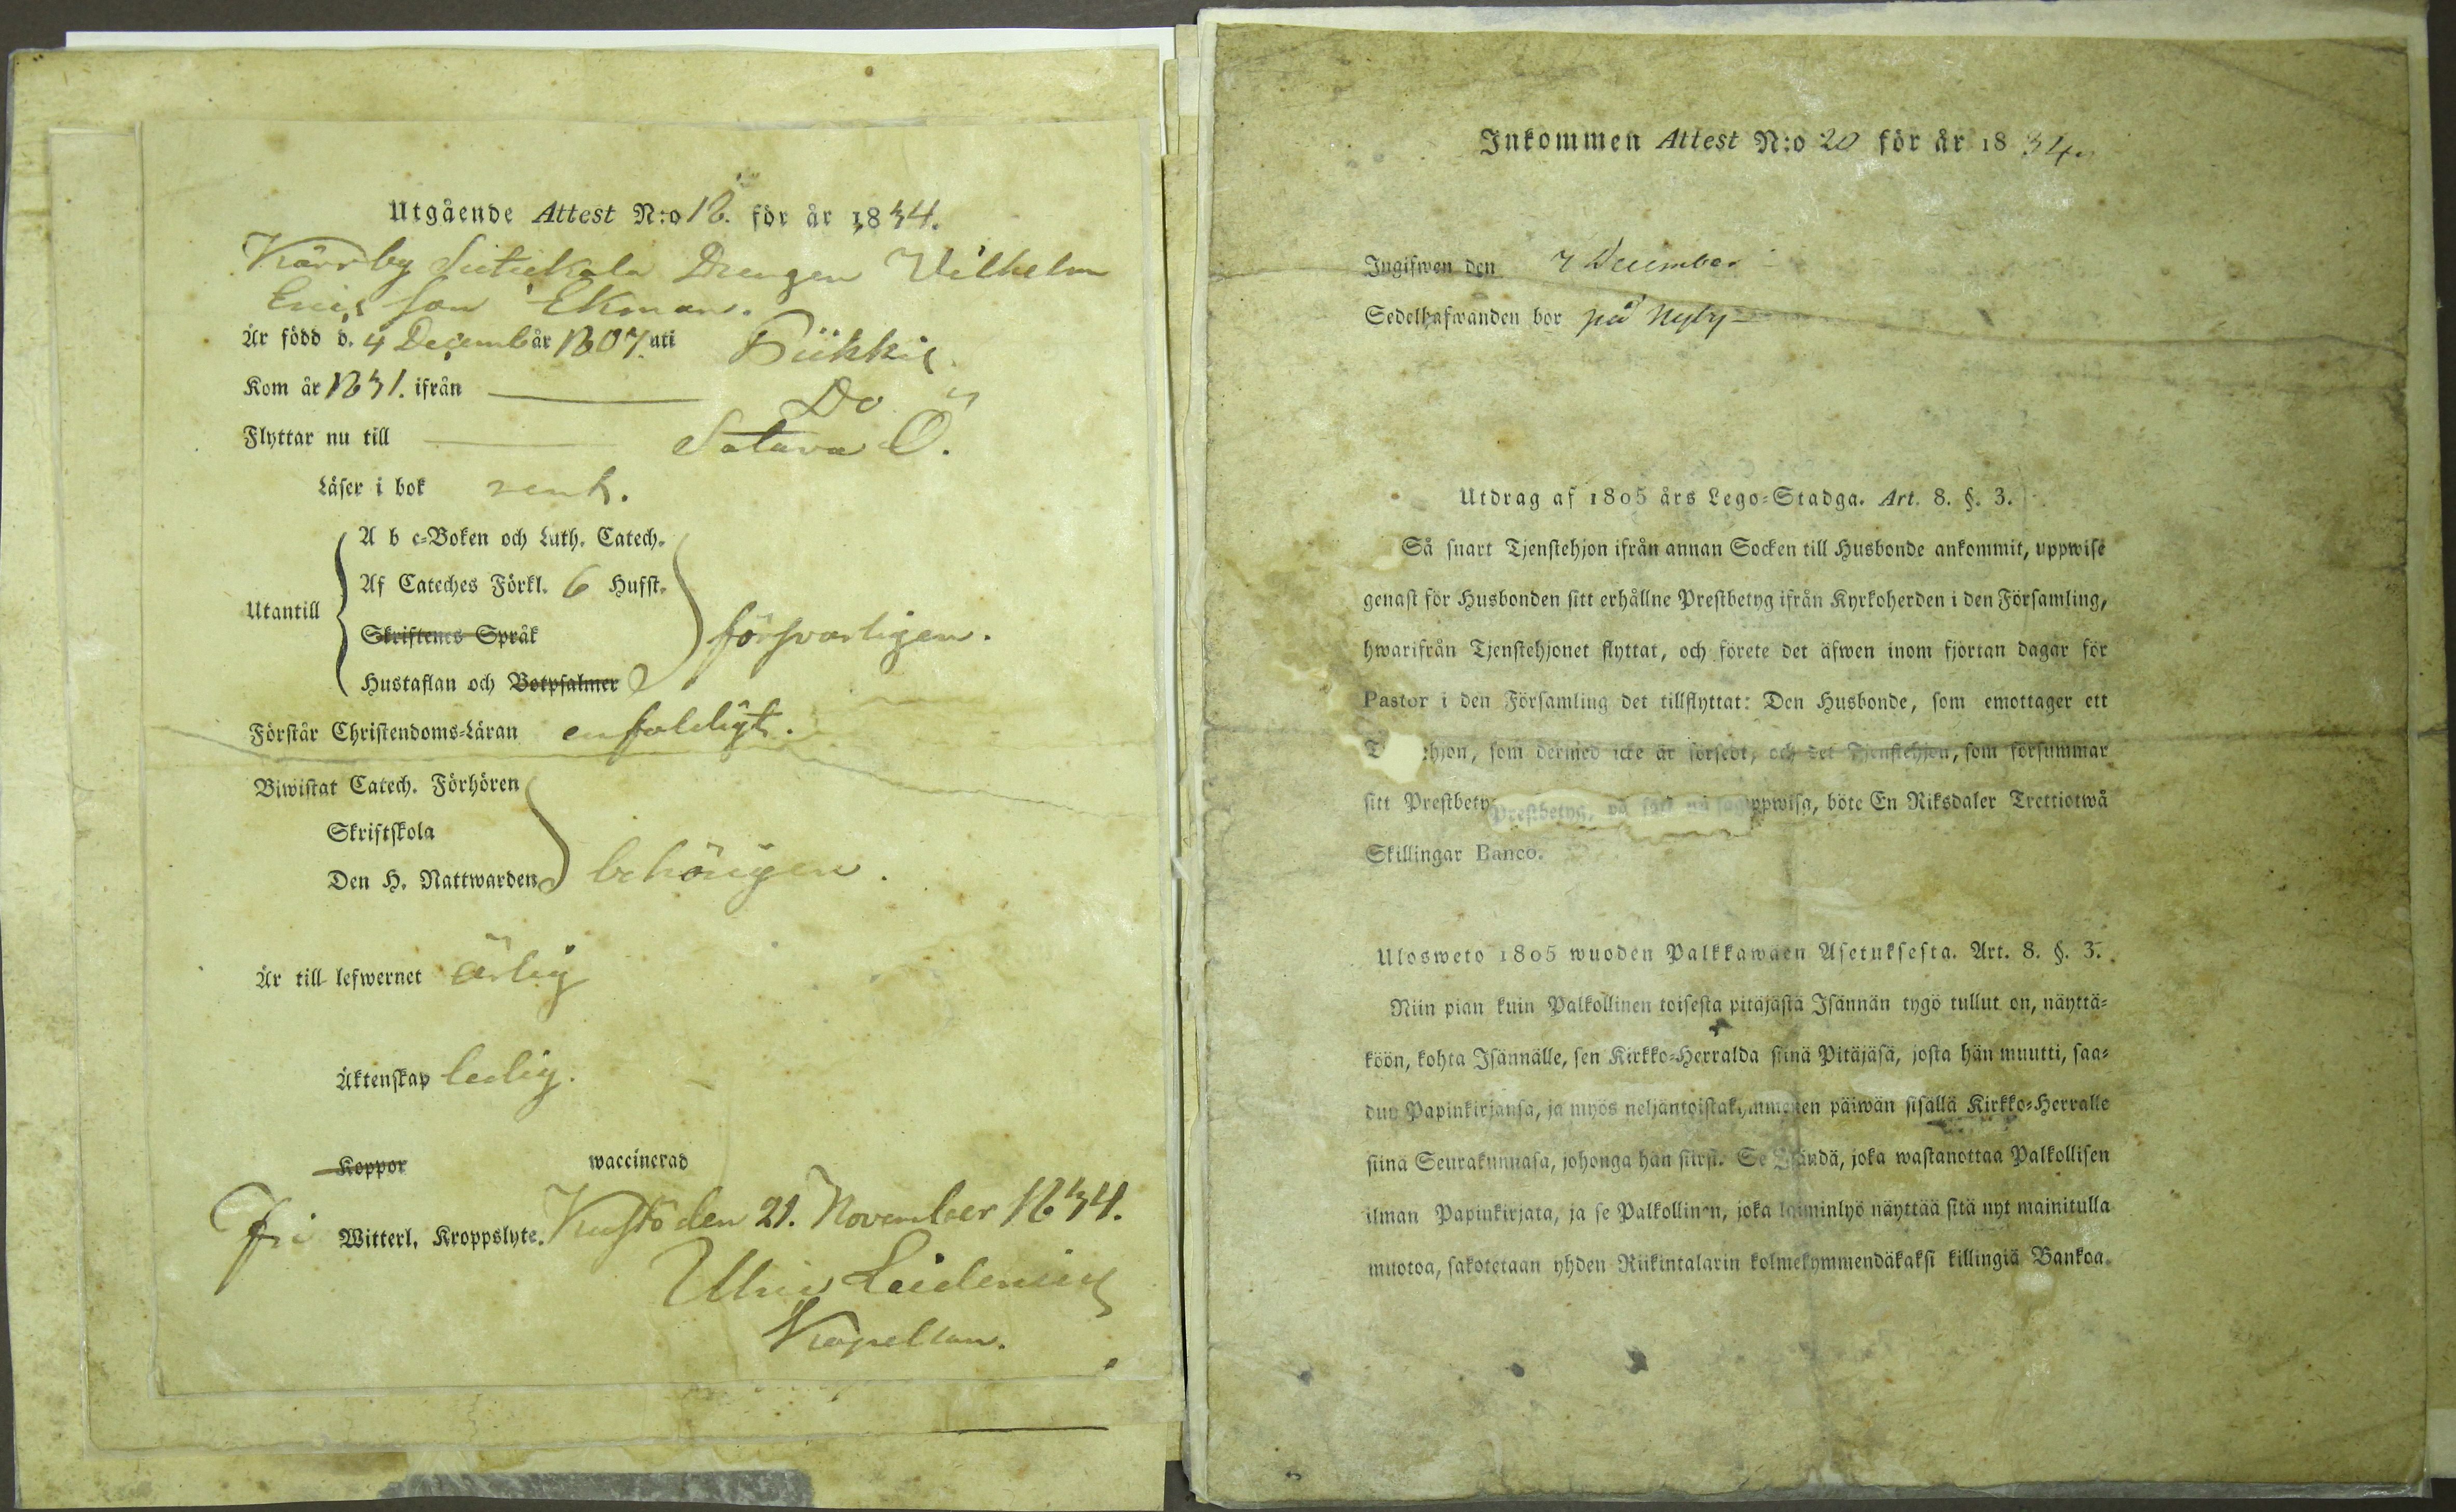 Utgående Attest N:o 18. för år 1834.
Kärrby Drengen Wilhelm
Ericsson Ekman.
Är född d. 4 Decemb år 1807. uti Piikkis
Kom år 1831. ifrån Do
Flyttar nu till Satava Ö.
Läser i bok rent.
A b c-Boken och Luth. Catech.
Af Cateches Förkl. 6 Hufst.
Utantill
Skriftenes Språk
försvarligen.
Hustaflan och Botpsalmer
Förstår Christendoms-Läran enfaldigt.
Biwistat Catech. Förhören
Skriftskola
Den H. Nattwarden behörigen.
Är till lefwernet ärlig
Äktenskap ledig.
Koppor waccinerad
fri Witterl. Kroppslyte. Kustö den 21. November 1834.
Leidenius
Kapellan.
Inkommen Attest N:o 20 för år 1834
Ingifwen den 7 December
Sedelhafwanden bor på Nyby
Utdrag af 1805 års Lego-Stadga. Art. 8. §. 3.
Så snart Tjenstehjon ifrån annan Socken till Husbonde ankommit, uppwise
genast för Husbonden sitt erhållne Prestbetyg ifrån Kyrkoherden i den Församling,
hwarifrån Tjenstehjonet flyttat, och förete det äfwen inom fjortan dagar för
Pastor i den Församling det tillflyttat: Den Husbonde, som emottager ett
T hjon, som dermed icke är försedt, och det Tjenstehjon, som försummar
sitt Prestbety Prestbetyg, på ppwisa, böte En Riksdaler Trettiotwå
Skillingar Banco.
Ulosweto 1805 wuoden Palkkawäen Asetuksesta. Art. 8. §. 3.
Niin pian kuin Palkollinen toisesta pitäjästä Isännän tygö tullut on, näyttä-
köön, kohta Isännälle, sen Kirkko-Herralda siinä Pitäjäsä, josta hän muutti, saa-
dun Papinkirjansa, ja myös neljäntoistakymmenen päiwän sisällä Kirkko-Herralle
siinä Seurakunnasa, johonga hän siirsi. Se Isändä, joka wastanottaa Palkollisen
ilman Papinkirjata, ja se Palkollinen, joka laiminlyö näyttää sitä nyt mainitulla
muotoa, sakotetaan yhden Riikintalarin kolmekymmendäkaksi killingiä Bankoa.